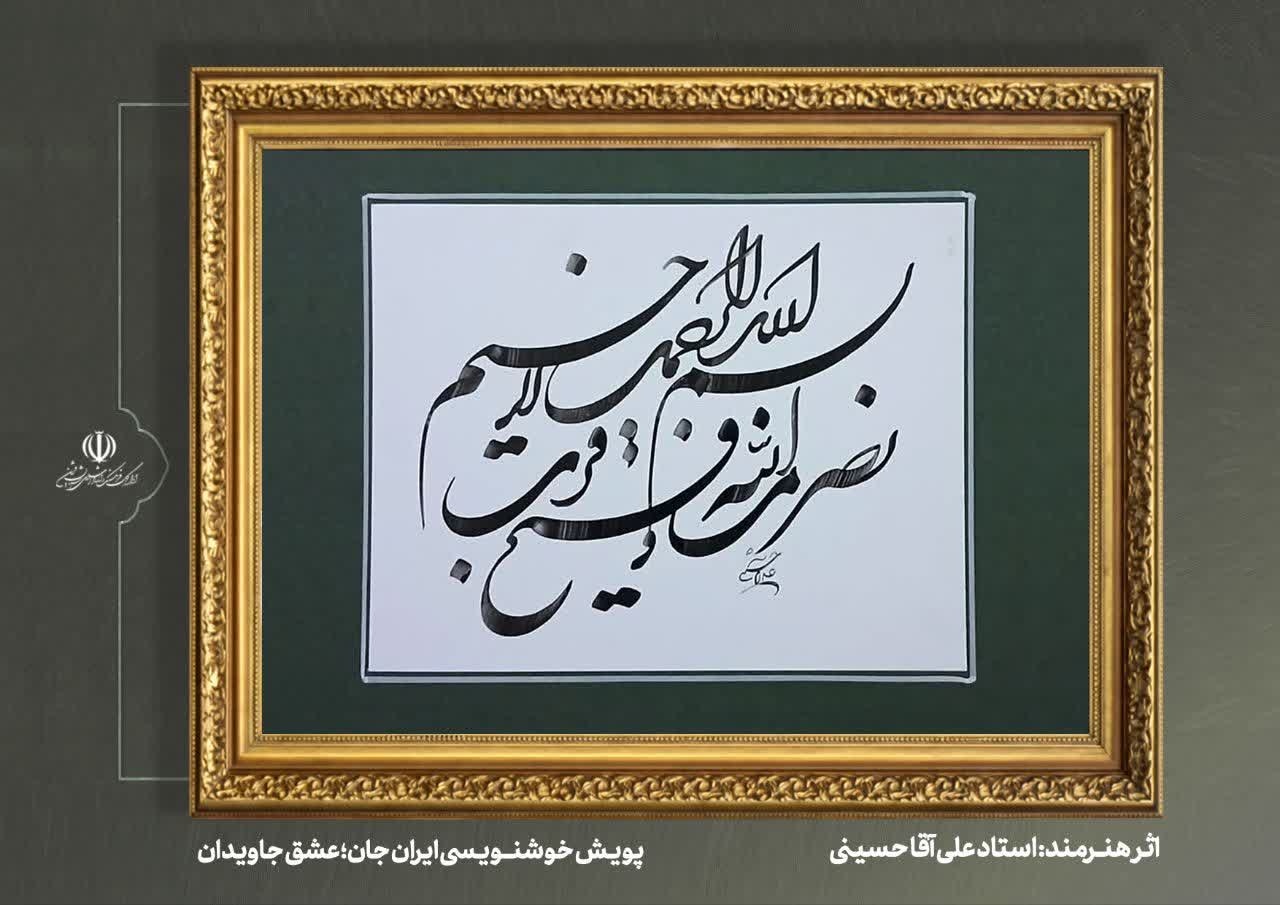 بسم الله الرحمن الرحیم
نصر من الله و فتح قریب
اثر هنرمند: استاد علی آقاحسینی
پویش خوشنویسی ایران جان؛ عشق جاویدان